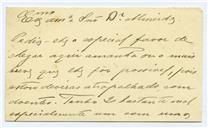 Exmo
amo Snr Dr Almeida
Pediu-lhe o especial favor de
chegar aqui amanhã o mais
que lhe fôr possivel, pois
estou deveras atrapalhado com
doente. Tenho bastante mal
especialmente um com uma